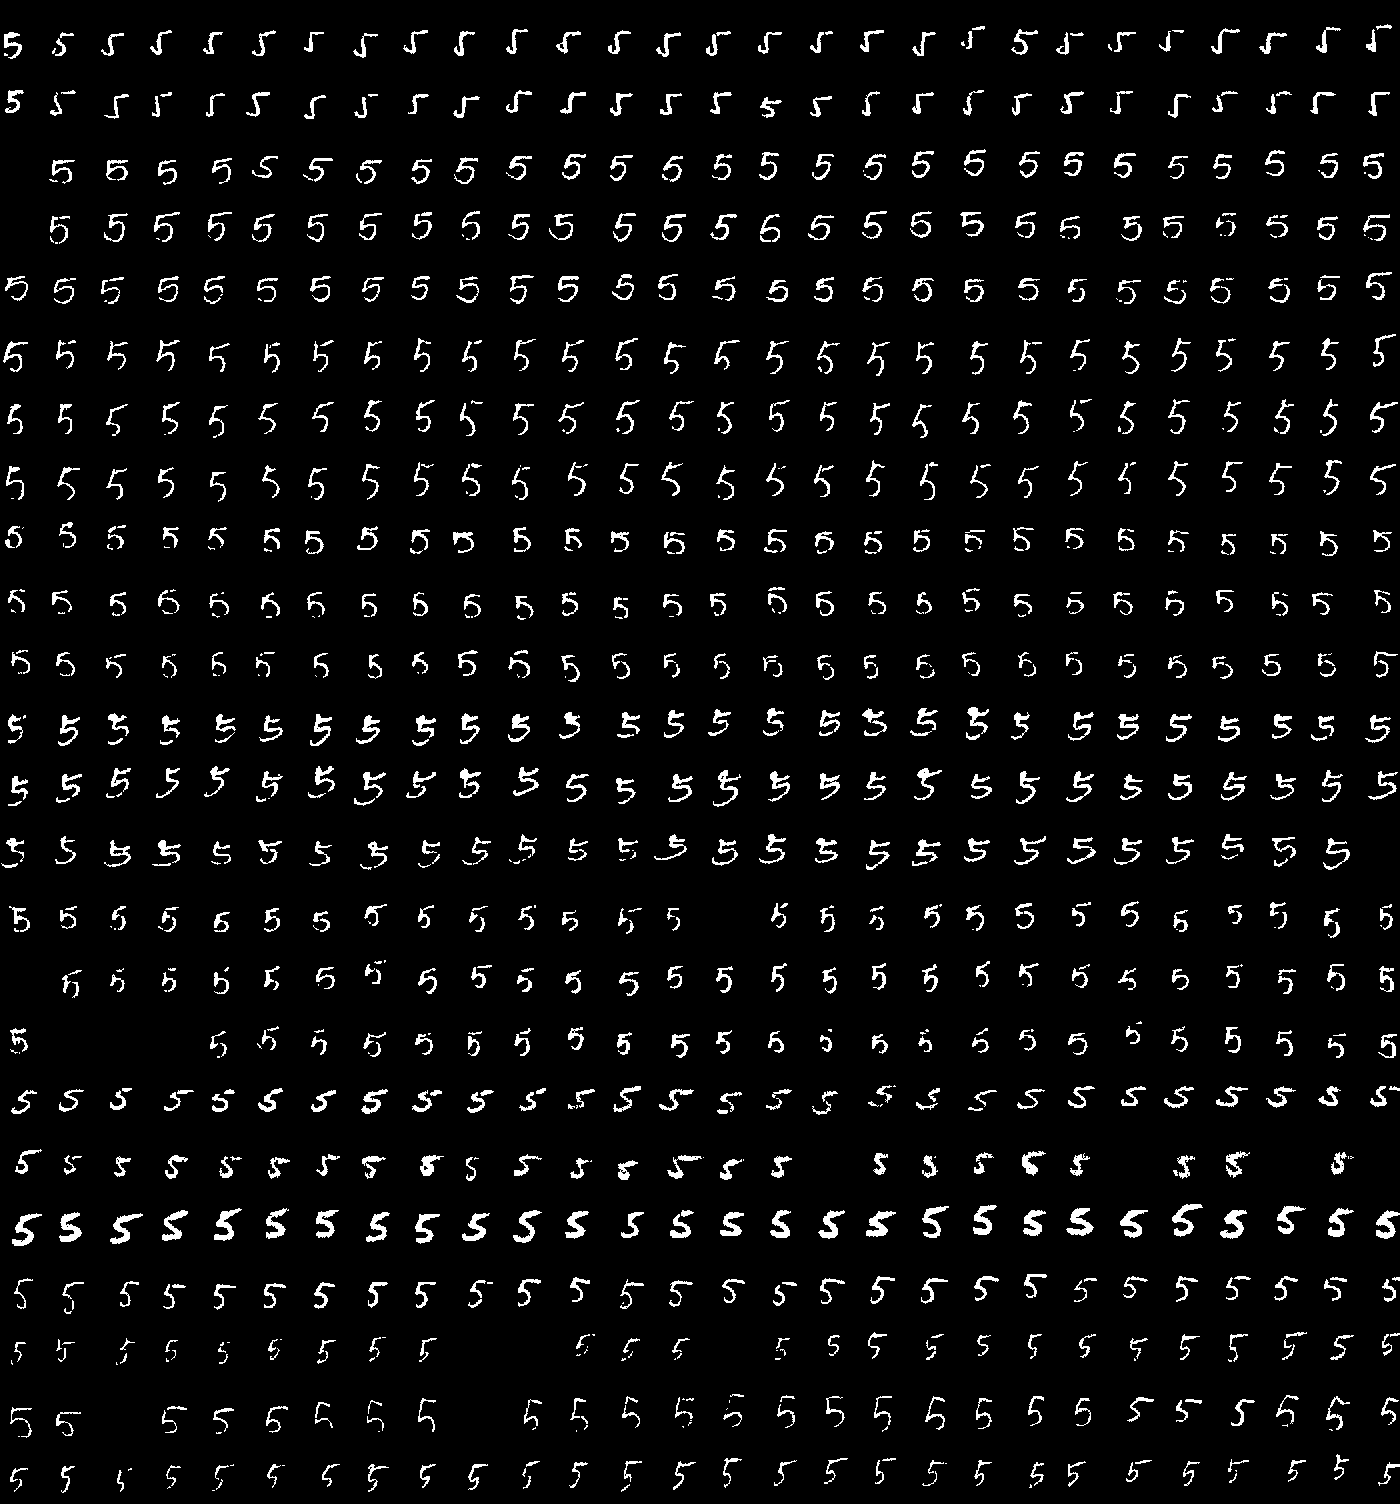 5 5 5 5 5 5 5 5 5 5 5 5 5 5 5 5 5 5 5 5 5 5 5 5 5 5 5 5
5 5 5 5 5 5 5 5 5 5 5 5 5 5 5 5 5 5 5 5 5 5 5 5 5 5 5 5
5 5 5 5 5 5 5 5 5 5 5 5 5 5 5 5 5 5 5 5 5 5 5 5 5 5 5
5 5 5 5 5 5 5 5 5 5 5 5 5 5 6 5 5 5 5 5 5 5 5 5 5 5 5
5 5 5 5 5 5 5 5 5 5 5 5 5 5 5 5 5 5 5 5 5 5 5 5 5 5 5 5
5 5 5 5 5 5 5 5 5 5 5 5 5 5 5 5 5 5 5 5 5 5 5 5 5 5 5 5
5 5 5 5 5 5 5 5 5 5 5 5 5 5 5 5 5 5 5 5 5 5 5 5 5 5 5 5
5 5 5 5 5 5 5 5 5 5 5 5 5 5 5 5 5 5 5 5 5 5 5 5 5 5 5 5
5 5 5 5 5 5 5 5 5 5 5 5 5 5 5 5 5 5 5 5 5 5 5 5 5 5 5 5
5 5 5 5 5 5 5 5 5 5 5 5 5 5 5 5 5 5 5 5 5 5 5 5 5 5 5 5
5 5 5 5 5 5 5 5 5 5 5 5 5 5 5 5 5 5 5 5 5 5 5 5 5 5 5 5
5 5 5 5 5 5 5 5 5 5 5 5 5 5 5 5 5 5 5 5 5 5 5 5 5 5 5 5
5 5 5 5 5 5 5 5 5 5 5 5 5 5 5 5 5 5 5 5 5 5 5 5 5 5 5 5
5 5 5 5 5 5 5 5 5 5 5 5 5 5 5 5 5 5 5 5 5 5 5 5 5 5 5
5 5 5 5 5 5 5 5 5 5 5 5 5 5 5 5 5 5 5 5 5 5 5 5 5 5 5
5 5 5 5 5 5 5 5 5 5 5 5 5 5 5 5 5 5 5 5 5 5 5 5 5 5 5
5 5 5 5 5 5 5 5 5 5 5 5 5 5 5 5 5 5 5 5 5 5 5 5 5
5 5 5 5 5 5 5 5 5 5 5 5 5 5 5 5 5 5 5 5 5 5 5 5 5 5 5 5
5 5 5 5 5 5 5 5 5 5 5 5 5 5 5 5 5 5 5 5 5 5 5 5
5 5 5 5 5 5 5 5 5 5 5 5 5 5 5 5 5 5 5 5 5 5 5 5 5 5 5 5
5 5 5 5 5 5 5 5 5 5 5 5 5 5 5 5 5 5 5 5 5 5 5 5 5 5 5 5
5 5 5 5 5 5 5 5 5 5 5 5 5 5 5 5 5 5 5 5 5 5 5 5 5
5 5 5 5 5 5 5 5 5 5 5 5 5 5 5 5 5 5 5 5 5 5 5 5 5 5
5 5 5 5 5 5 5 5 5 5 5 5 5 5 5 5 5 5 5 5 5 5 5 5 5 5 5 5